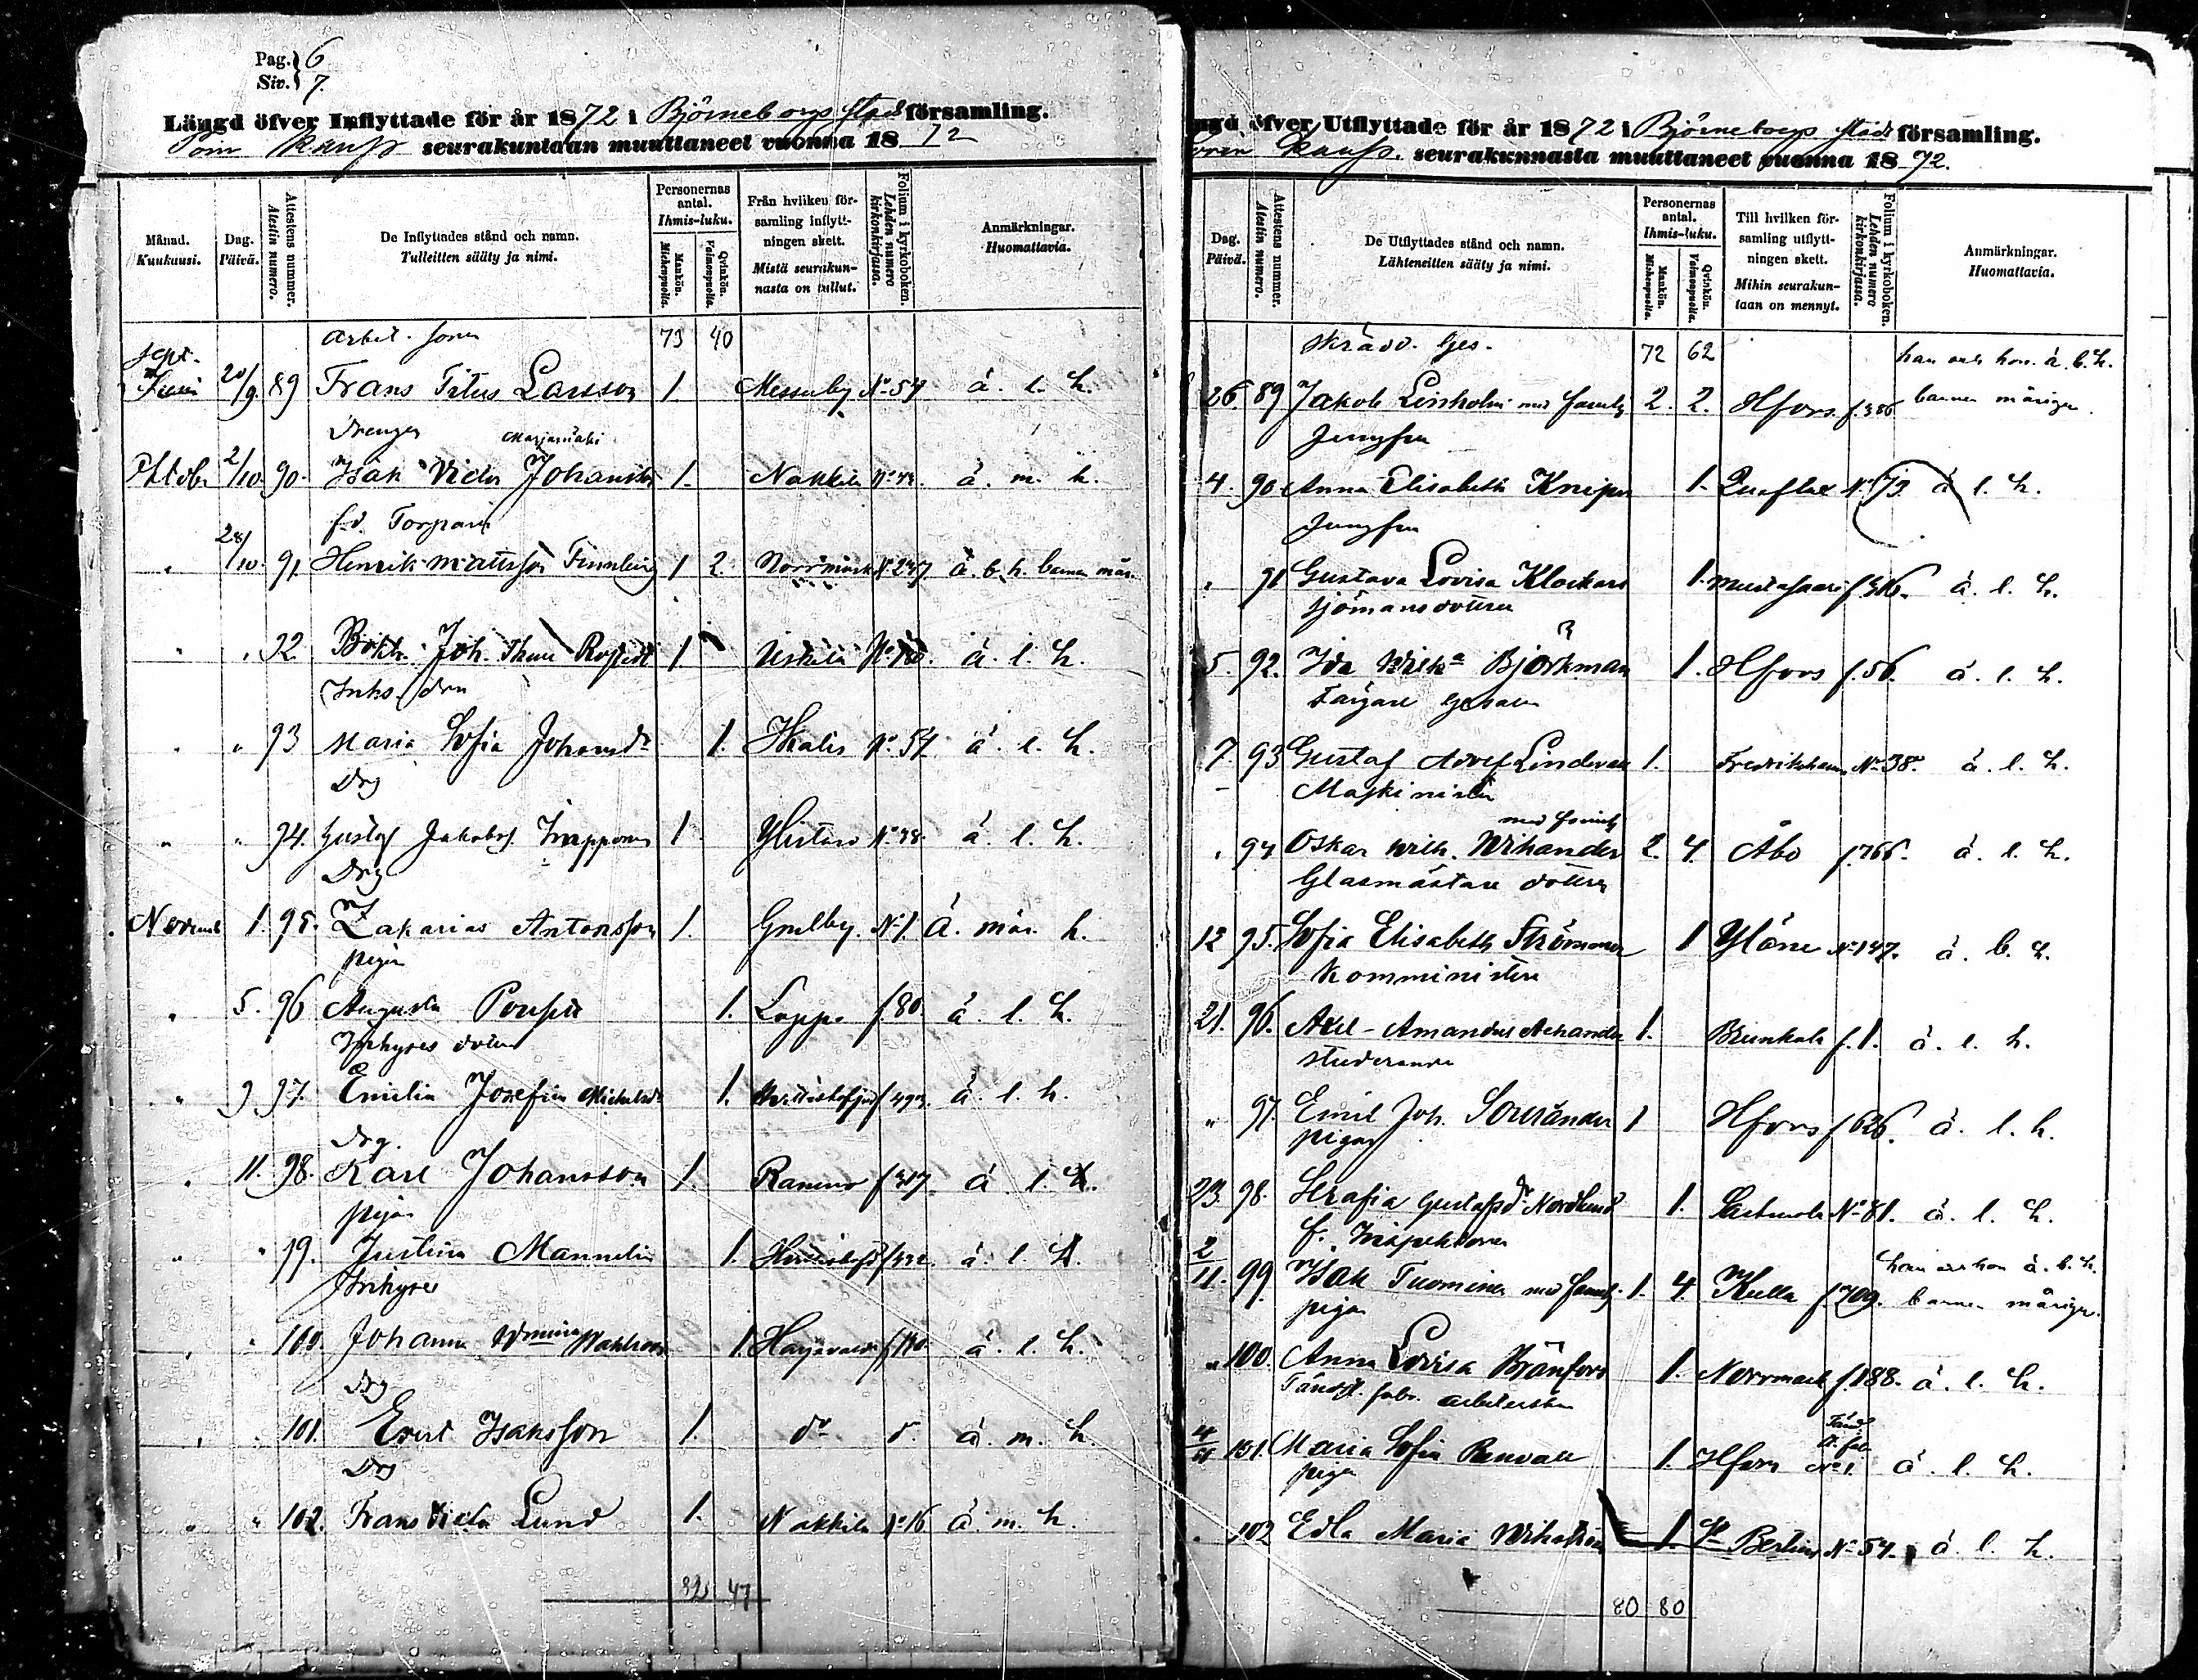 Pag. } 6
Siv. } 7.
Längd öfver Inflyttade för år 1872 i Björneborgs stads församling.
Porin Kaup. seurakuntaan muuttaneet vuonna 1872
Månad. Kuukausi.
Dag. Päivä.
Attestens nummer. Atestin numero.
De Inflyttades stånd och namn. Tulleitten sääty ja nimi.
Personernas antal. Ihmis-luku.
Mankön. Miehenpuolia.
Qvinkön. Vaimonpuolia.
Från hvilken församling inflyttningen skett. Mistä seurakunnasta on tullut.
Folium i kyrkoboken. Lehden numero kirkonkirjassa.
Anmärkningar. Huomattavia.
Arbet. sonen 73 40
Sept. 20/9 89 Frans Titus Larsson 1 Messuby No 54 á. l. h.
Drengen Marjamäki
Oktobr 2/10 90. Isak Victor Johansson 1. Nakkila No 43. á. m. h.
f.d. Torparen
" 28/10. 91. Henrik Mattsson 1 2. Norrmark No 247. á. b. h. barnen mås.
" " 92. Bokh. Joh. 1 Uskila á. l. h.
Inhs. drn
" " 93 Maria Sofia Johansdr 1. Ikalis No 54 á. l. h.
Drg
" " 94. Gustaf Jakobss. 1 Ylistaro No 48. á. l. h.
Drg
Novemb 1. 95. Zakarias Antonsson 1. Gmlby. No 1. á. mås. h.
pigan
" 5. 96 Augusta 1. Loppo f. 80. á. l. h.
Inhyses dottern
" 9. 97. Emilia Josefina Michelsdr 1. á. l. h.
Drg.
" 11. 98. Karl Johansson 1. Raumo f 317. á. l. h.
pigan
" " 99. Justina Mannelin 1. á. l. h.
Inhyses
" " 100. Johanna 1. Harjavalta f 170. á. l. h.
Drg
" " 101. Evert Isaksson 1. do d. á. m. h.
Drg
" " 102. Frans Victor Lund 1. Nakkila No 16 á. m. h.
82 47
ngd öfver Utflyttade för år 1872 i Björneborgs stads församling.
orin Kaup. seurakunnasta muuttaneet vuonna 1872.
Dag. Päivä.
Attestens nummer. Atestin numero.
De Utflyttades stånd och namn. Lähteneitten sääty ja nimi.
Personernas antal. Ihmis-luku.
Mankön. Miehenpuolia.
Qvinkön. Vaimonpuolia.
Till hvilken församling utflyttningen skett. Mihin seurakuntaan on mennyt.
Folium i kyrkoboken. Lehden numero kirkonkirjassa.
Anmärkningar. Huomattavia.
Skrädd. Ges. 72 62 han och hon. á. b. h.
26. 89 Jakob Linholm med familj 2. 2. Hfors. f. 386 barnen måsige.
Jungfru
4. 90 Anna Elisabeth Kniper 1. Quaflax No 79. á l. h.
Jungfru
" 91 Gustava Lovisa Klockars 1. Mustasaari f. 316. á. l. h.
sjömansdottern
5. 92. Ida Wilha Björkman 1. Hfors f. 56. á. l. h.
Färgare gesällen
7. 93 Gustaf Adolf Lindvall 1. Fredrikshamn No 38. á. l. h.
Maskinisten
med familj
" 94 Oskar Wilh. Wihander 2. 4. Åbo f. 766. á. l. h.
Glasmästare dottern
12 95. Sofia Elisabeth Strömmer 1 Yläne No 147. á. b. h.
Komministern
21. 96. Axel Amandus Achander 1. Brunkala f. 1. á. l. h.
studeranden
" 97. Emil Joh. 1 Hfors f 626. á. l. h.
pigan
23. 98. Serafia Gustafsdr Nordlund 1. Lastmola No 81. á. l. h.
f. Inspektoren
2/11. 99. Isak Tuominen med familj. 1. 4. Kulla f. 709. han och hon á. b. h. barnen måsige.
pigan
" 100. Anna Lovisa Bränfors 1. Norrmark f. 188. á. l. h.
Tändst. fabr. arbeterskan
4/11 101. Maria Sofia Renvall 1. Hfors No 1. á. l. h.
pigan
" 102 Edla Maria Wikström 1. No 54. á. l. h.
80 80